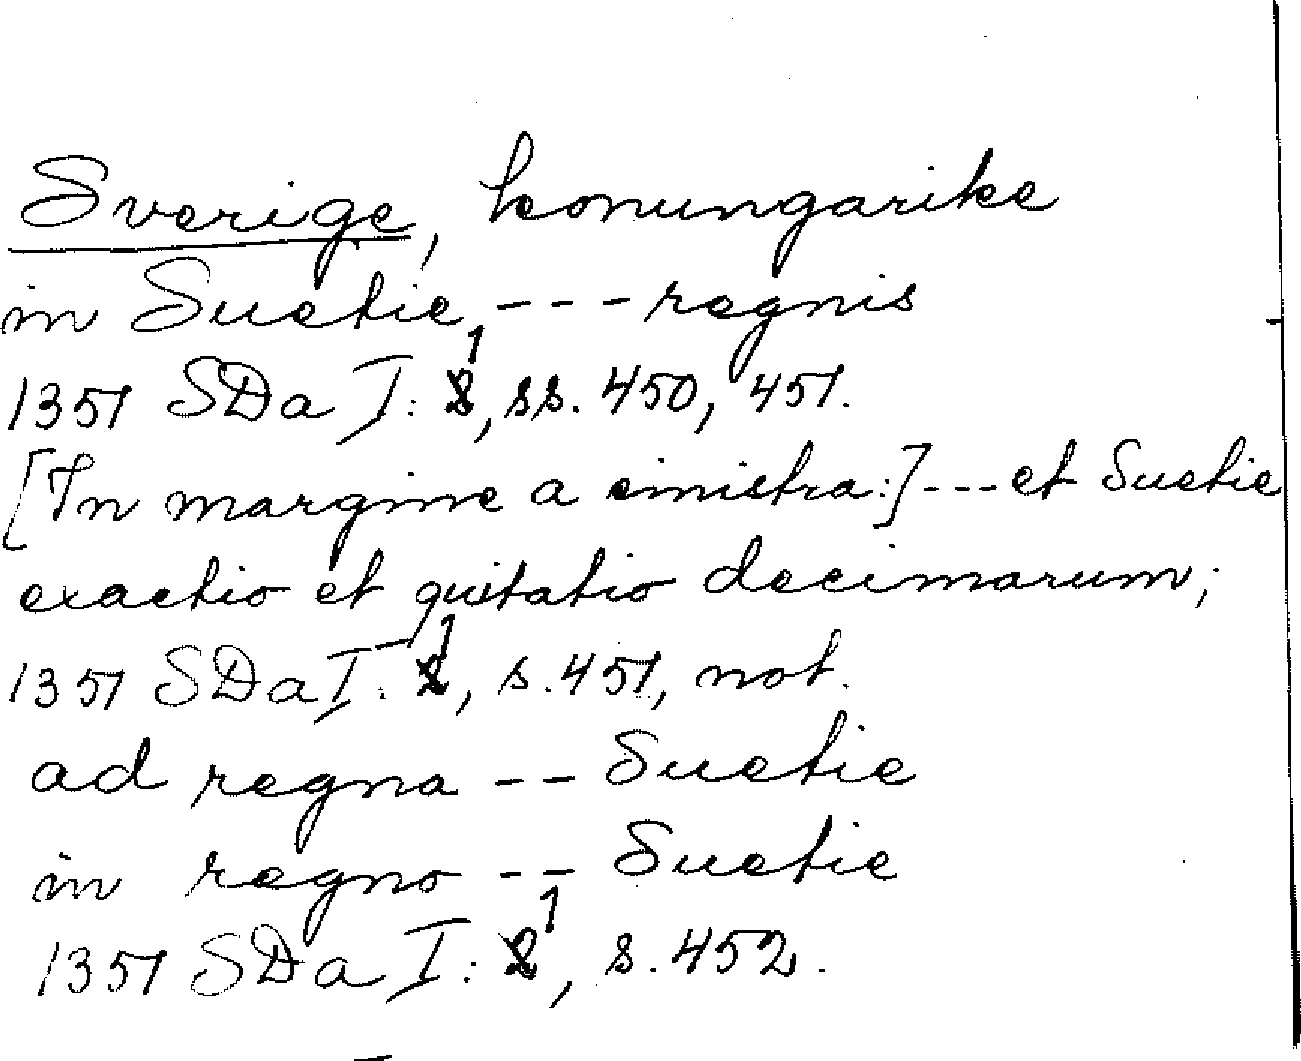 Sverige, konungarike
in Suetie, --- regnis
1351 SDa I: 1, ss. 450, 451.
[In margine a sinistra:] --- et Suetie
exactio et quitatio decimarum;
1351 SDa I: 1, s. 451, not.
ad regna -- Suetie
in regno -- Suetie
1351 SDa I: 1, s. 452.